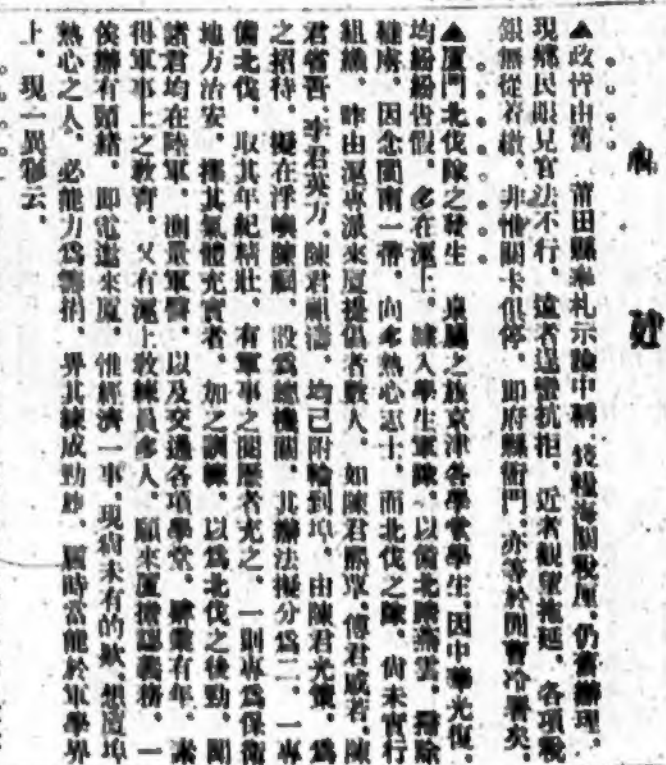 福建
▲政皆由舊 莆田縣奉札示諭中稱、錢糧海關稅厘、仍舊辦理、
現鄉民眼見官法不行、遠者逞蠻抗拒、近者觀望拖延、各項稅
銀無從若繳、非惟關卡俱停、即府縣衙門、亦等於閒曹冷署矣、
▲廈門北伐隊之發生 泉屬之旅京津各學堂學生、因中華光復、
均紛紛告假、多在滬上、投入學生軍隊、以備北勝燕雲、掃除
穢虜、因念閩南一帶、向多熱心志士、而北伐之隊、尚未實行
組織、昨由滬專派來廈提倡者數人、如陳君 傅君成若、陳
君 李君英方、陳君祖濤、均已附輪到埠、由陳君光 、為
之招待、擬在浮嶼陳 、設為總機關、其辦法擬分為二、一專
備北伐、取其年紀精壯、有軍事之閱歷者充之、一則專為保衛
地方治安、擇其氣體充實者、加之訓練、以為北伐之後勁、聞
諸君均在陸軍、測量軍醫、以及交通各項學堂、肄業有年、素
得軍事上之教育、又有滬上教練員多人、願來廈擔認義務、一
俟辦有頭緒、即電邀來廈、惟經濟一事、現尚未有的款、想該埠
熱心之人、必能力為籌捐、畀其練成勁旅、屆時當能於軍學界
上、現一異彩云、